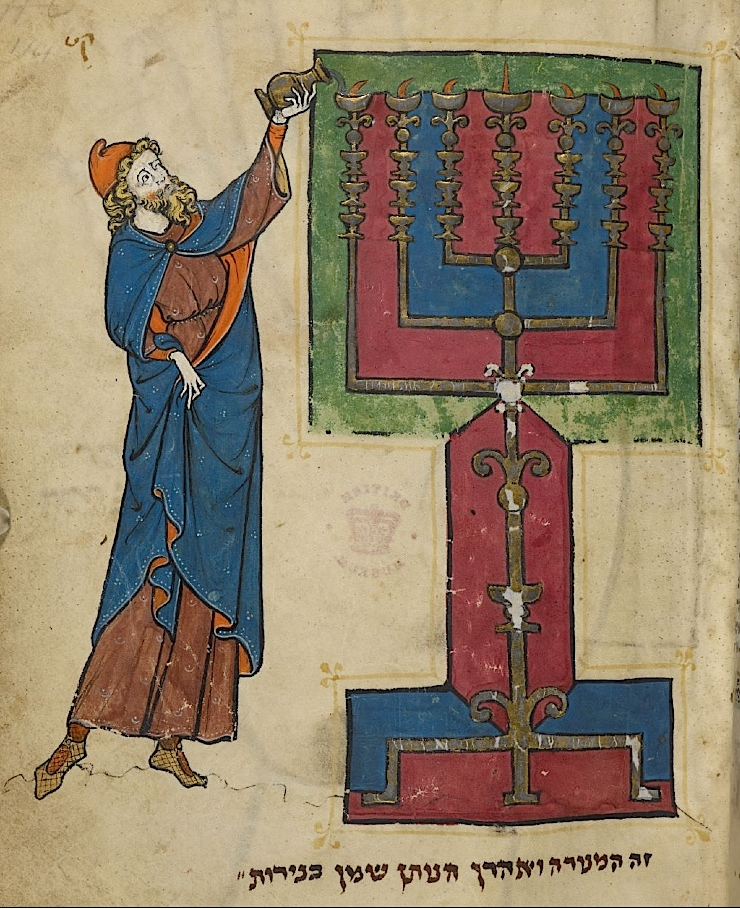 BRITISH MUSEUM
זה המנורה ואהרן הנותן שמן בנירות״